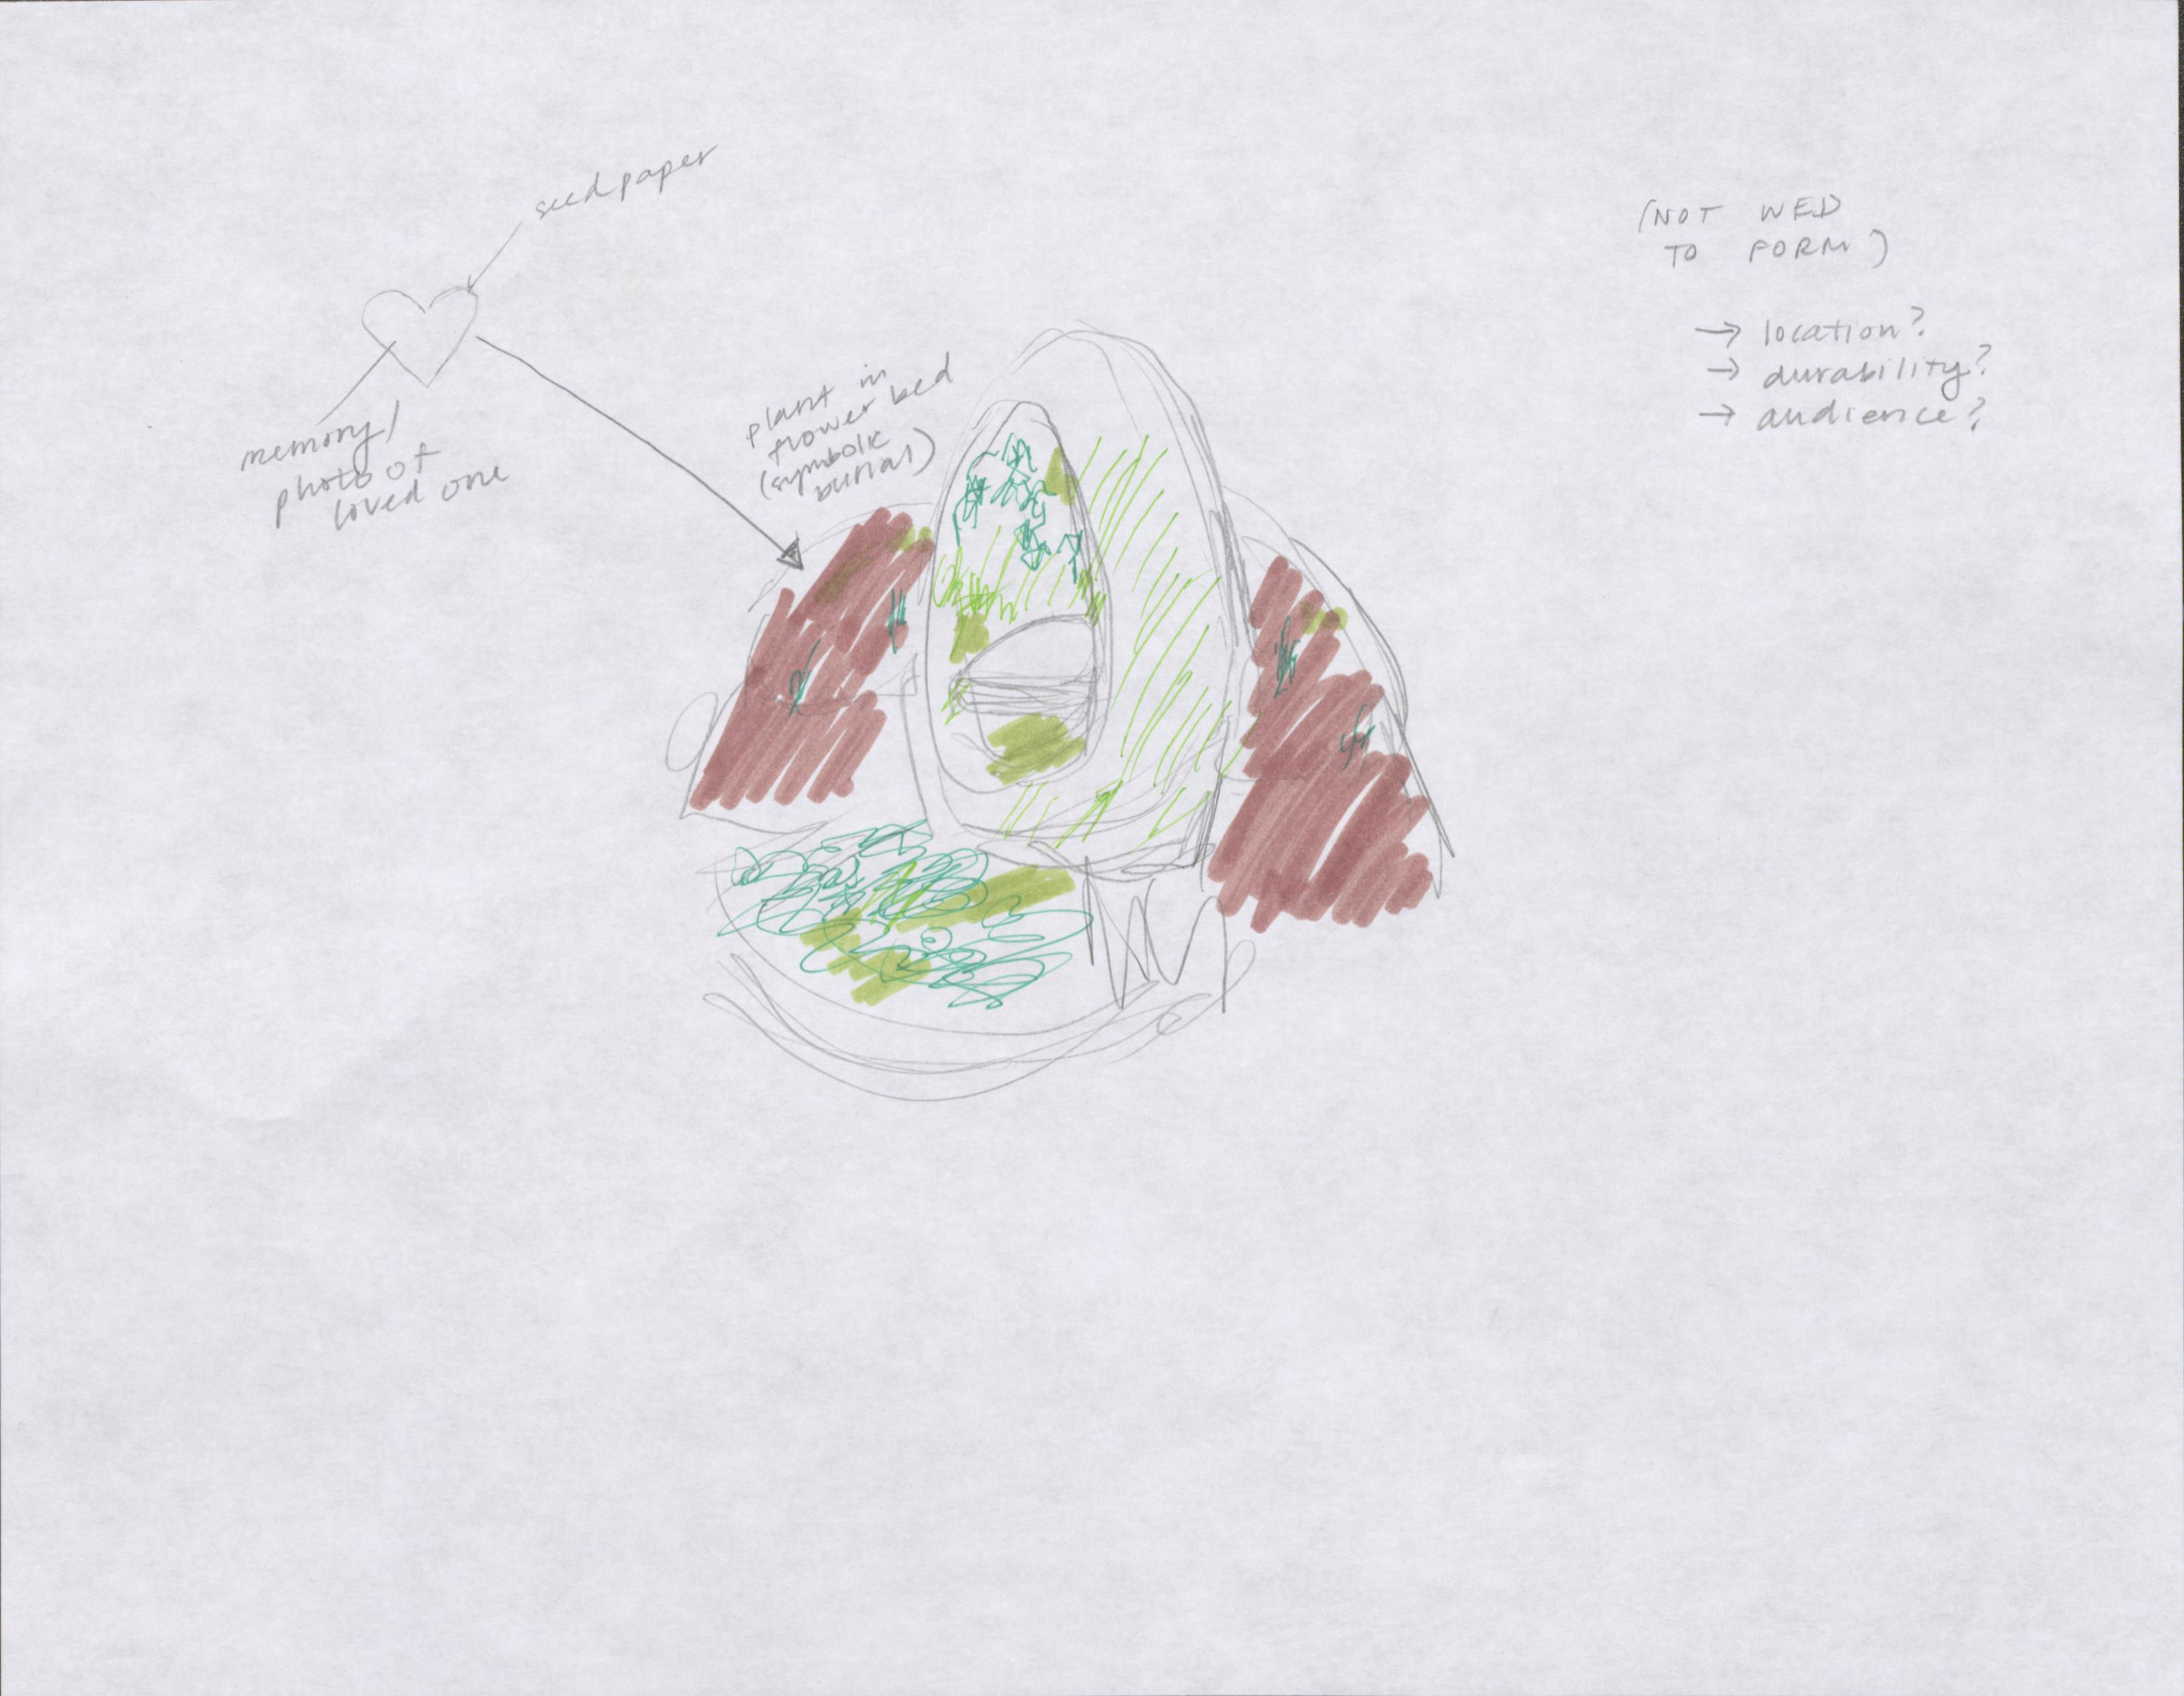 seed paper
memory/
photo of
loved one
plant in
flower bed
(symbolic
burial)
(NOT WED
TO FORM)
→ location?
→ durability?
→ audience?